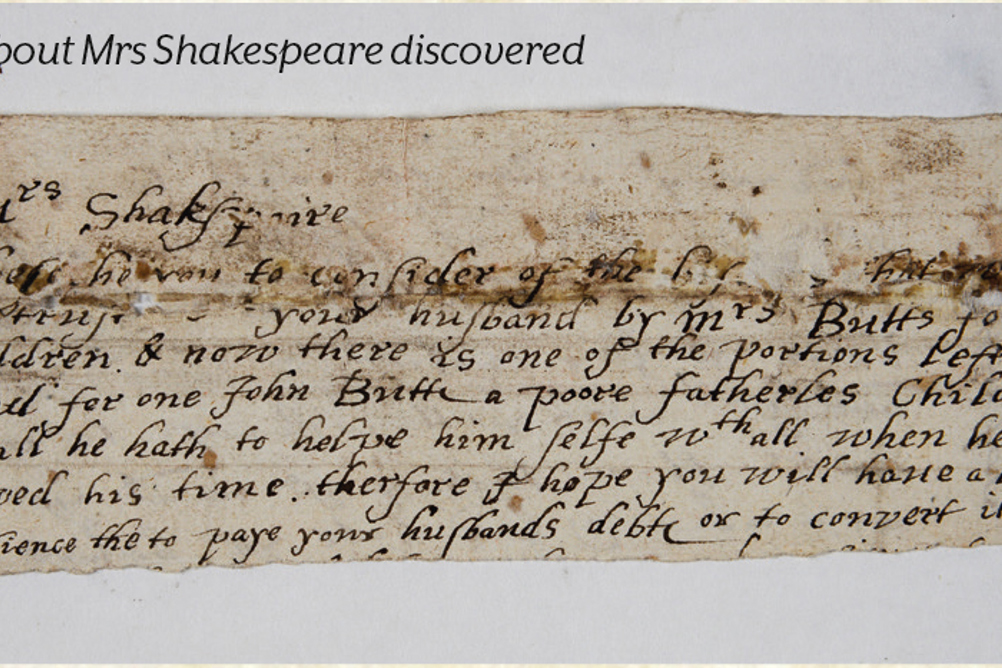 bout Mrs Shakespeare discovered
rs Shakspaire
you to consider of the
your husband by mrs Butts fo
ldren & now there is one of the portions left
for one John Butte a poore fatherles Child
all he hath to helpe him selfe wth all when he
ved his time therfore I hope you will haue a
ience the to paye your husbands debte or to convert it